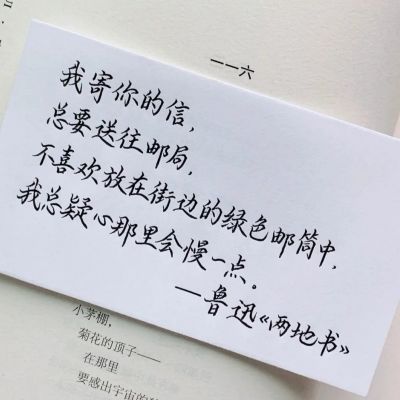 一一六
我寄你的信，
总要送往邮局，
不喜欢放在街边的绿色邮筒中，
我总疑心那里会慢一点。
——鲁迅《两地书》
小茅棚，
菊花的顶子——
在那里
要感出宇宙的